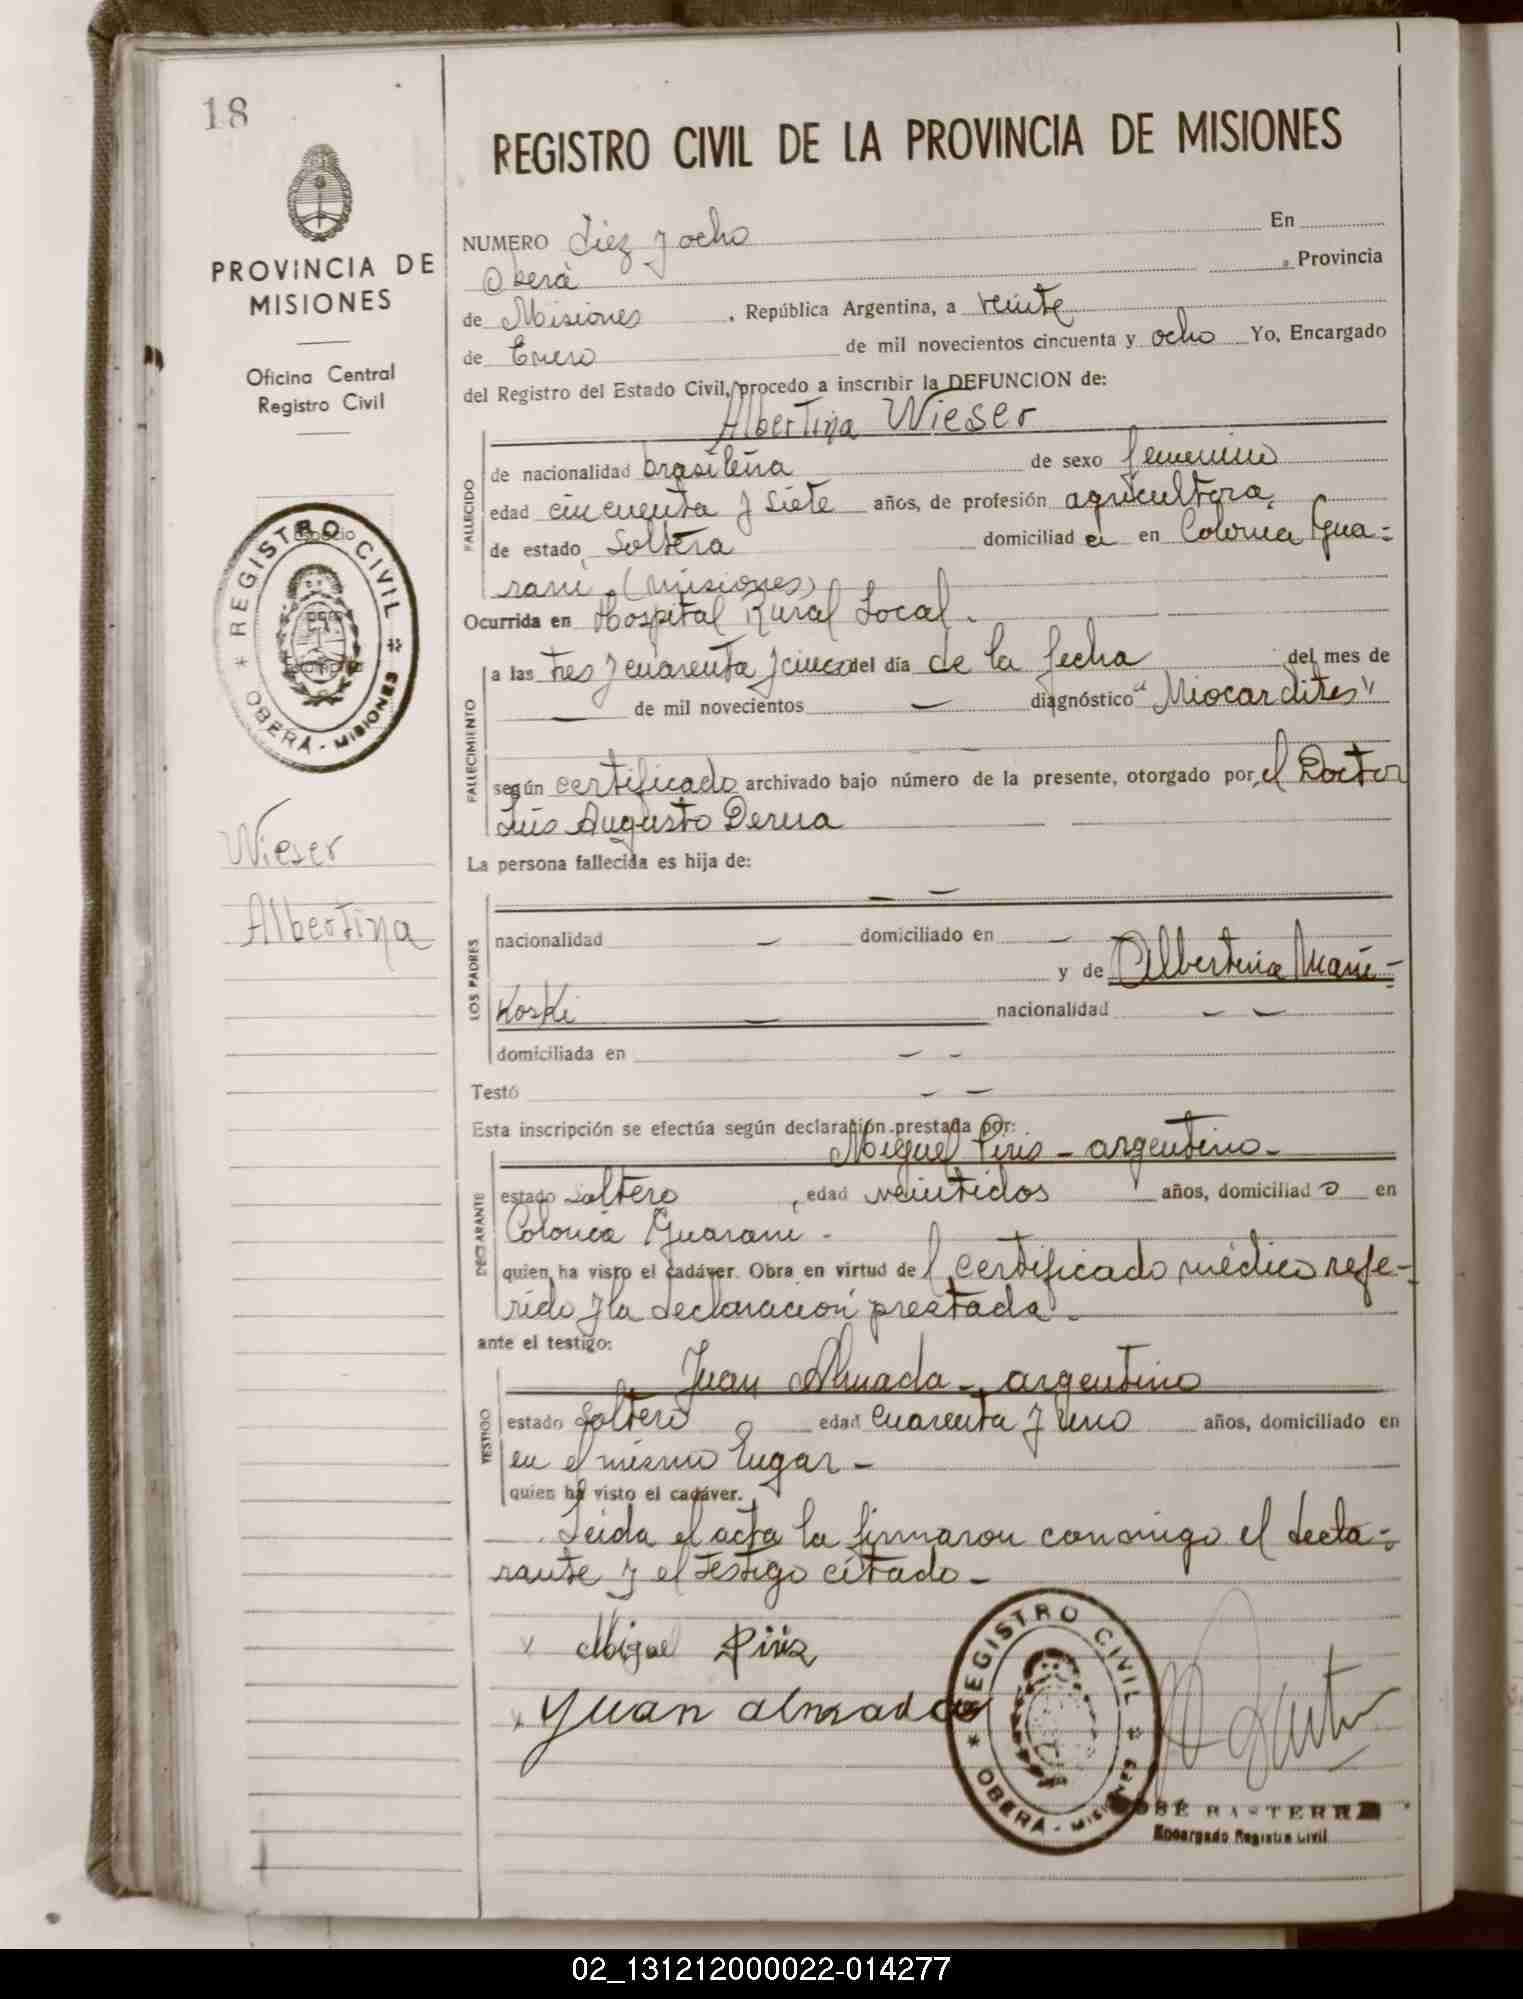 18
PROVINCIA DE
MISIONES
Oficina Central
Registro Civil
REGISTRO CIVIL
OBERÁ - MISIONES
Wieser
Albertina
REGISTRO CIVIL DE LA PROVINCIA DE MISIONES
NUMERO Diez y ocho En
Oberá , Provincia
de Misiones , República Argentina, a veinte
de Enero de mil novecientos cincuenta y ocho Yo, Encargado
del Registro del Estado Civil, procedo a inscribir la DEFUNCION de:
Albertina Wieser
FALLECIDO
de nacionalidad brasileña de sexo femenino
edad cincuenta y siete años, de profesión agricultora,
de estado Soltera domiciliad a en Colonia Gua=
raní (Misiones)
Ocurrida en Hospital Rural Local.
FALLECIMIENTO
a las tres y cuarenta y cinco del día de la fecha del mes de
— de mil novecientos — diagnóstico "Miocarditis"
—
según certificado archivado bajo número de la presente, otorgado por el Doctor
Luis Augusto Derna
La persona fallecida es hija de:
— —
LOS PADRES
nacionalidad — domiciliado en —
y de Albertina Mani=
Koski — nacionalidad — —
domiciliada en — -
Testó — —
Esta inscripción se efectúa según declaración prestada por:
Miguel Piris - argentino-
DECLARANTE
estado Soltero , edad veintidos años, domiciliad o en
Colonia Guaraní -
quien ha visto el cadáver. Obra en virtud del certificado médico refe-
rido y la declaración prestada -
ante el testigo:
Juan Almada - argentino
TESTIGO
estado Soltero edad Cuarenta y uno años, domiciliado en
en el mismo lugar -
quien ha visto el cadáver.
Leida el acta la firmaron conmigo el decla=
rante y el testigo citado -
Miguel Piris
Juan almada
REGISTRO CIVIL
OBERÁ - MISIONES
JOSÉ BASTERRA
Encargado Registro Civil
02_131212000022-014277